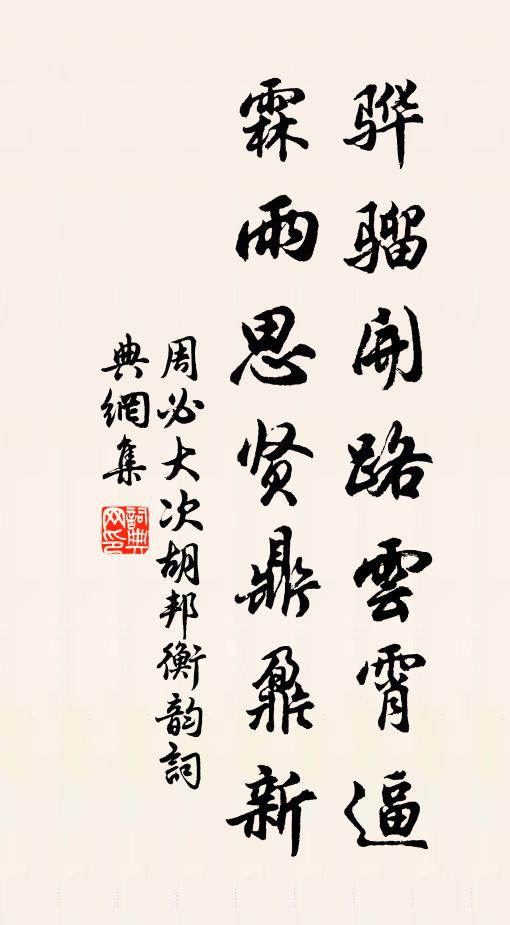 骅骝開路雲霄逼
霖雨思贤鼎鼐新
周必大次胡邦衡韵詞
典網集
詞典网印